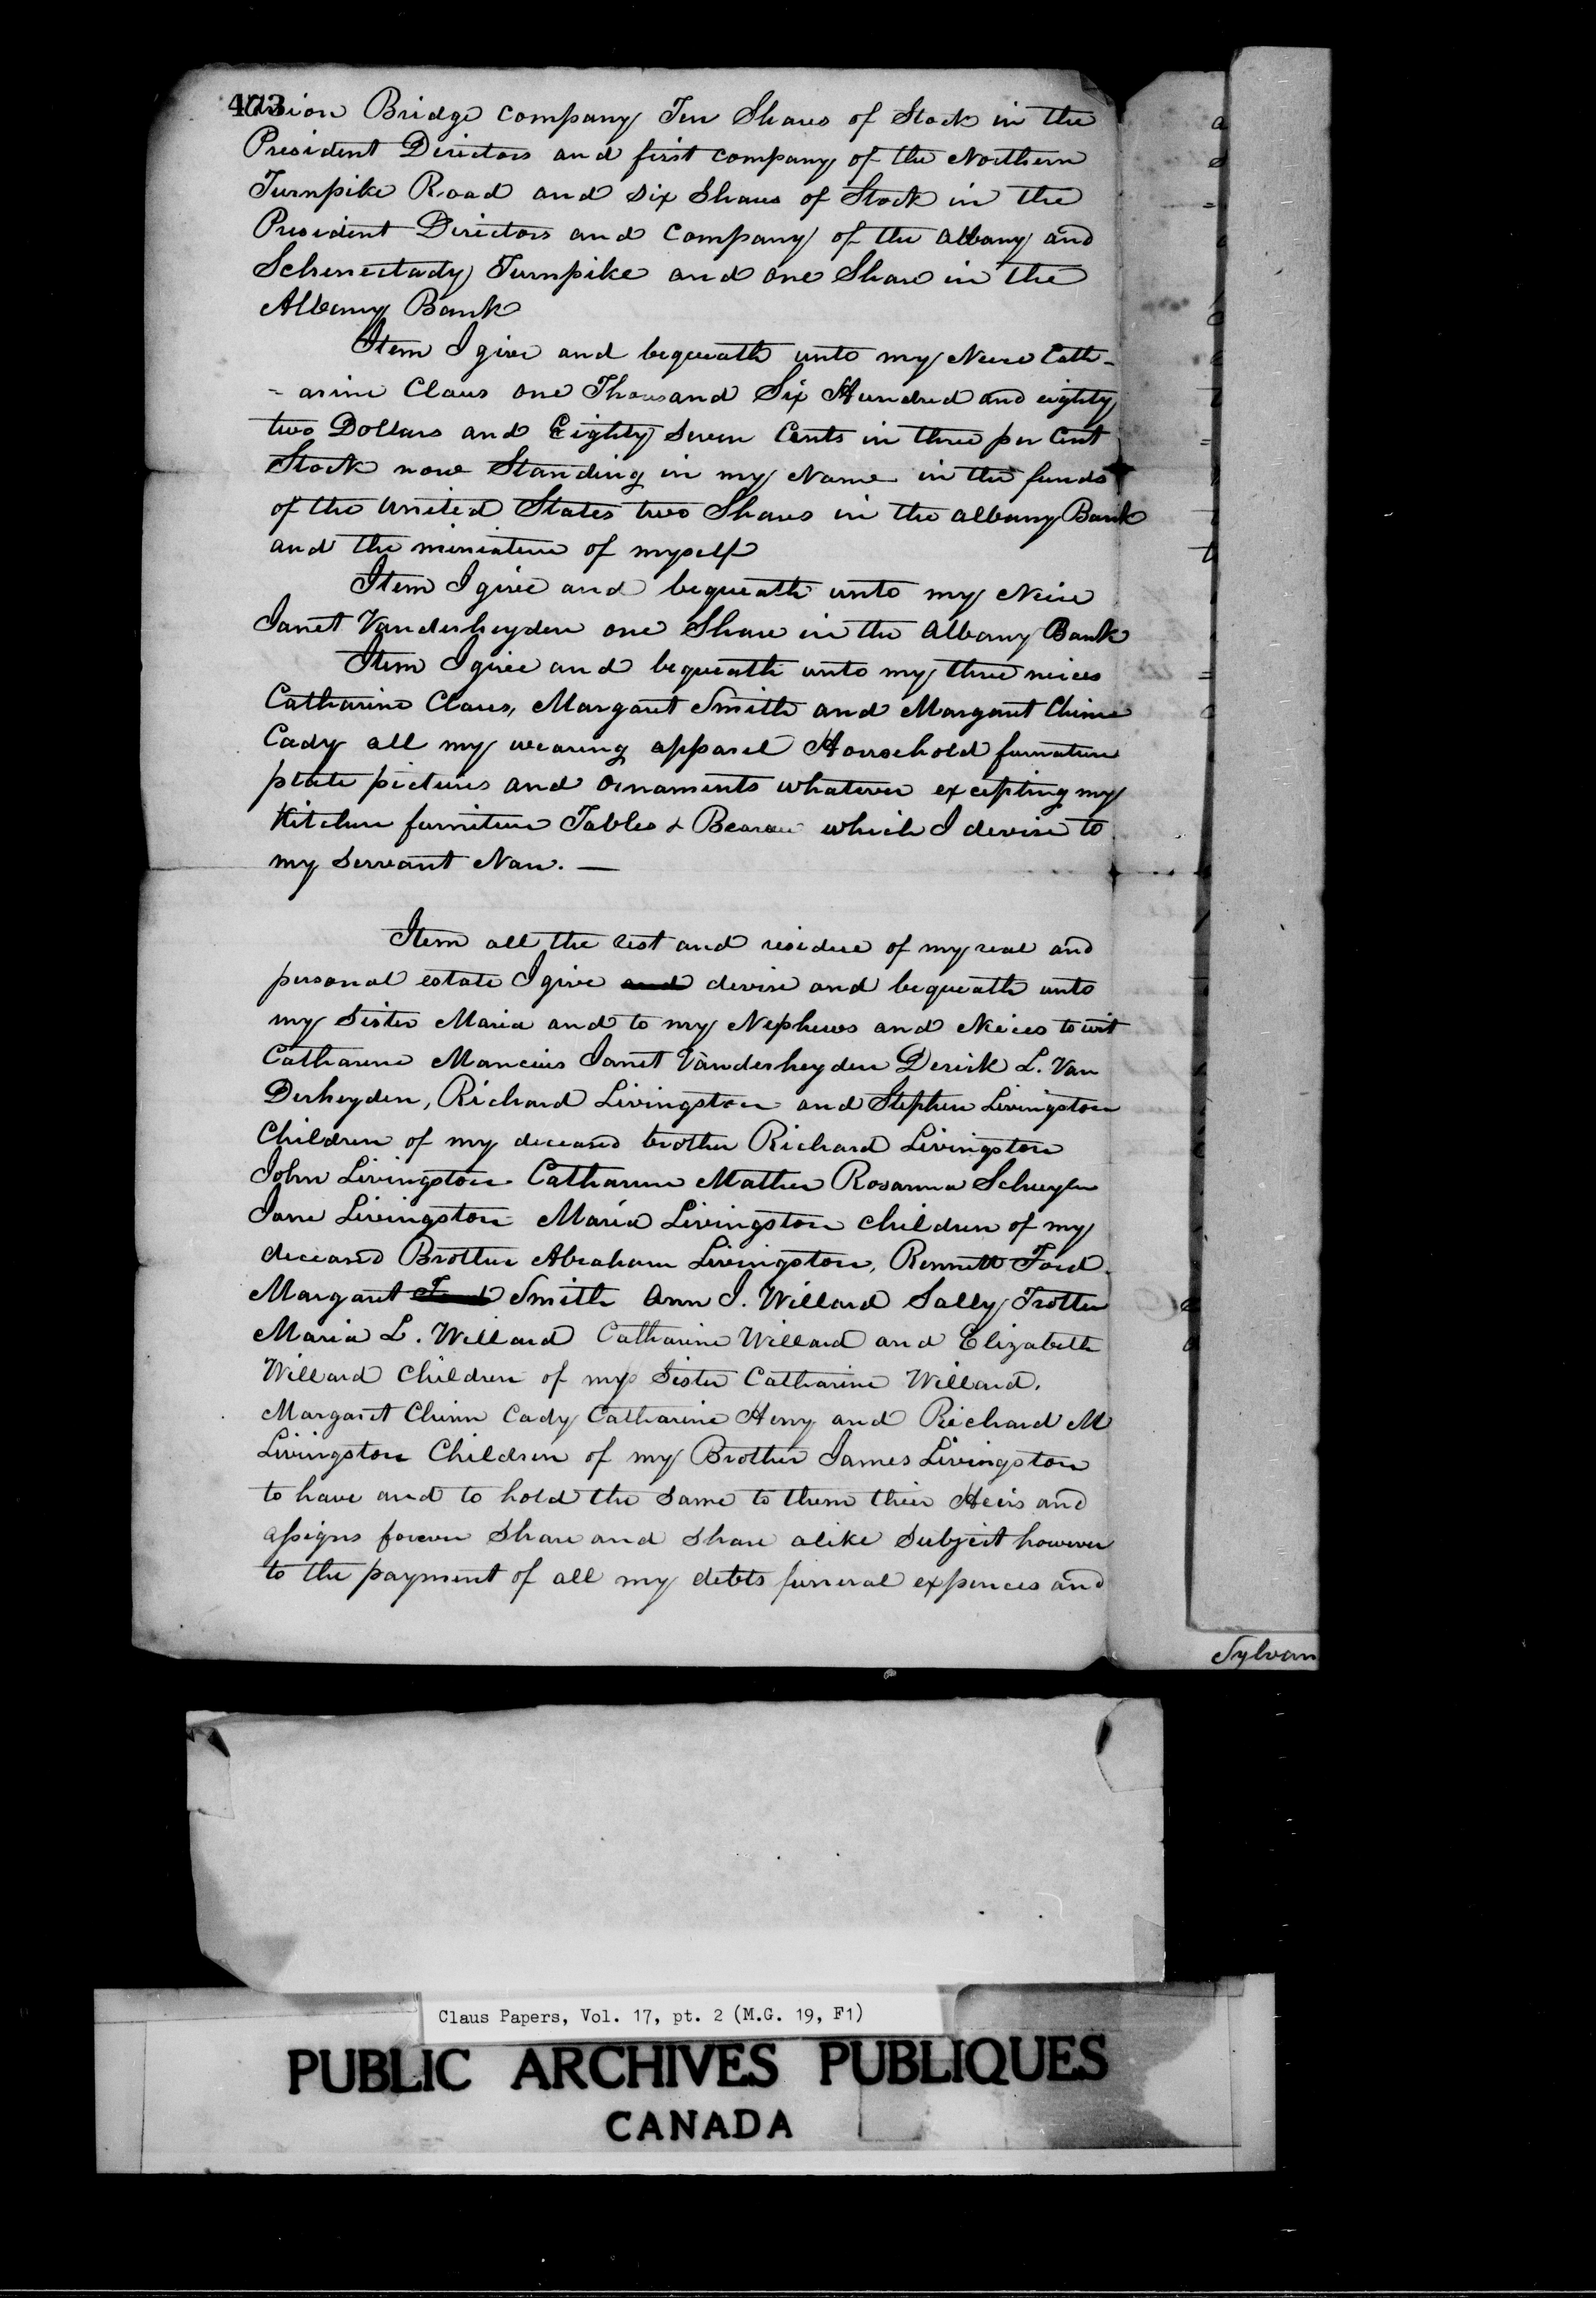 473
Union Bridge company Ten Shares of Stock in the
President Directors and first company of the Northern
Turnpike Road and six Shares of Stock in the
President Directors and Company of the Albany and
Schenectady Turnpike and one Share in the
Albany Bank
Item I give and bequeath unto my Neice Cath-
-arine Claus one Thousand Six Hundred and eighty
two Dollars and Eighty Seven Cents in three per Cent
Stock now Standing in my Name in the funds
of the United States two Shares in the albany Bank
and the miniature of myself
Item I give and bequeath unto my Neice
Janet Vanderheyden one Share in the Albany Bank
Item I give and bequeath unto my three neices
Catharine Claus, Margaret Smith and Margaret Chinn
Cady all my wearing apparel Household furnature
plate pictures and ornaments whatever excepting my
Kitchen furniture Tables & Bearau which I devise to
my Servant Nan. —
Item all the rest and residue of my real and
personal estate I give and devise and bequeath unto
my Sister Maria and to my Nephews and Neices to wit
Catharine Mancius Janet Vanderheyden Derick L. Van
Derheyden, Richard Livingston and Stephen Livingston
Children of my deceased brother Richard Livingston
John Livingston Catharine Mather Rosanna Schuyler
Jane Livingston Maria Livingston children of my
deceased Brother Abraham Livingston, Rennett Ford.
Margaret Ford Smith Ann J. Willard Sally Trotter
Maria L. Willard Catharine Willard and Elizabeth
Willard Children of my Sister Catharine Willard.
Margaret Chinn Cady Catharine Henry and Richard M
Livingston Children of my Brother James Livingston
to have and to hold the Same to them their Heirs and
assigns forever Share and Share alike Subject however
to the payment of all my debts funeral expences and
Sylvan
Claus Papers, Vol. 17, pt. 2 (M.G. 19, F1)
PUBLIC ARCHIVES PUBLIQUES
CANADA